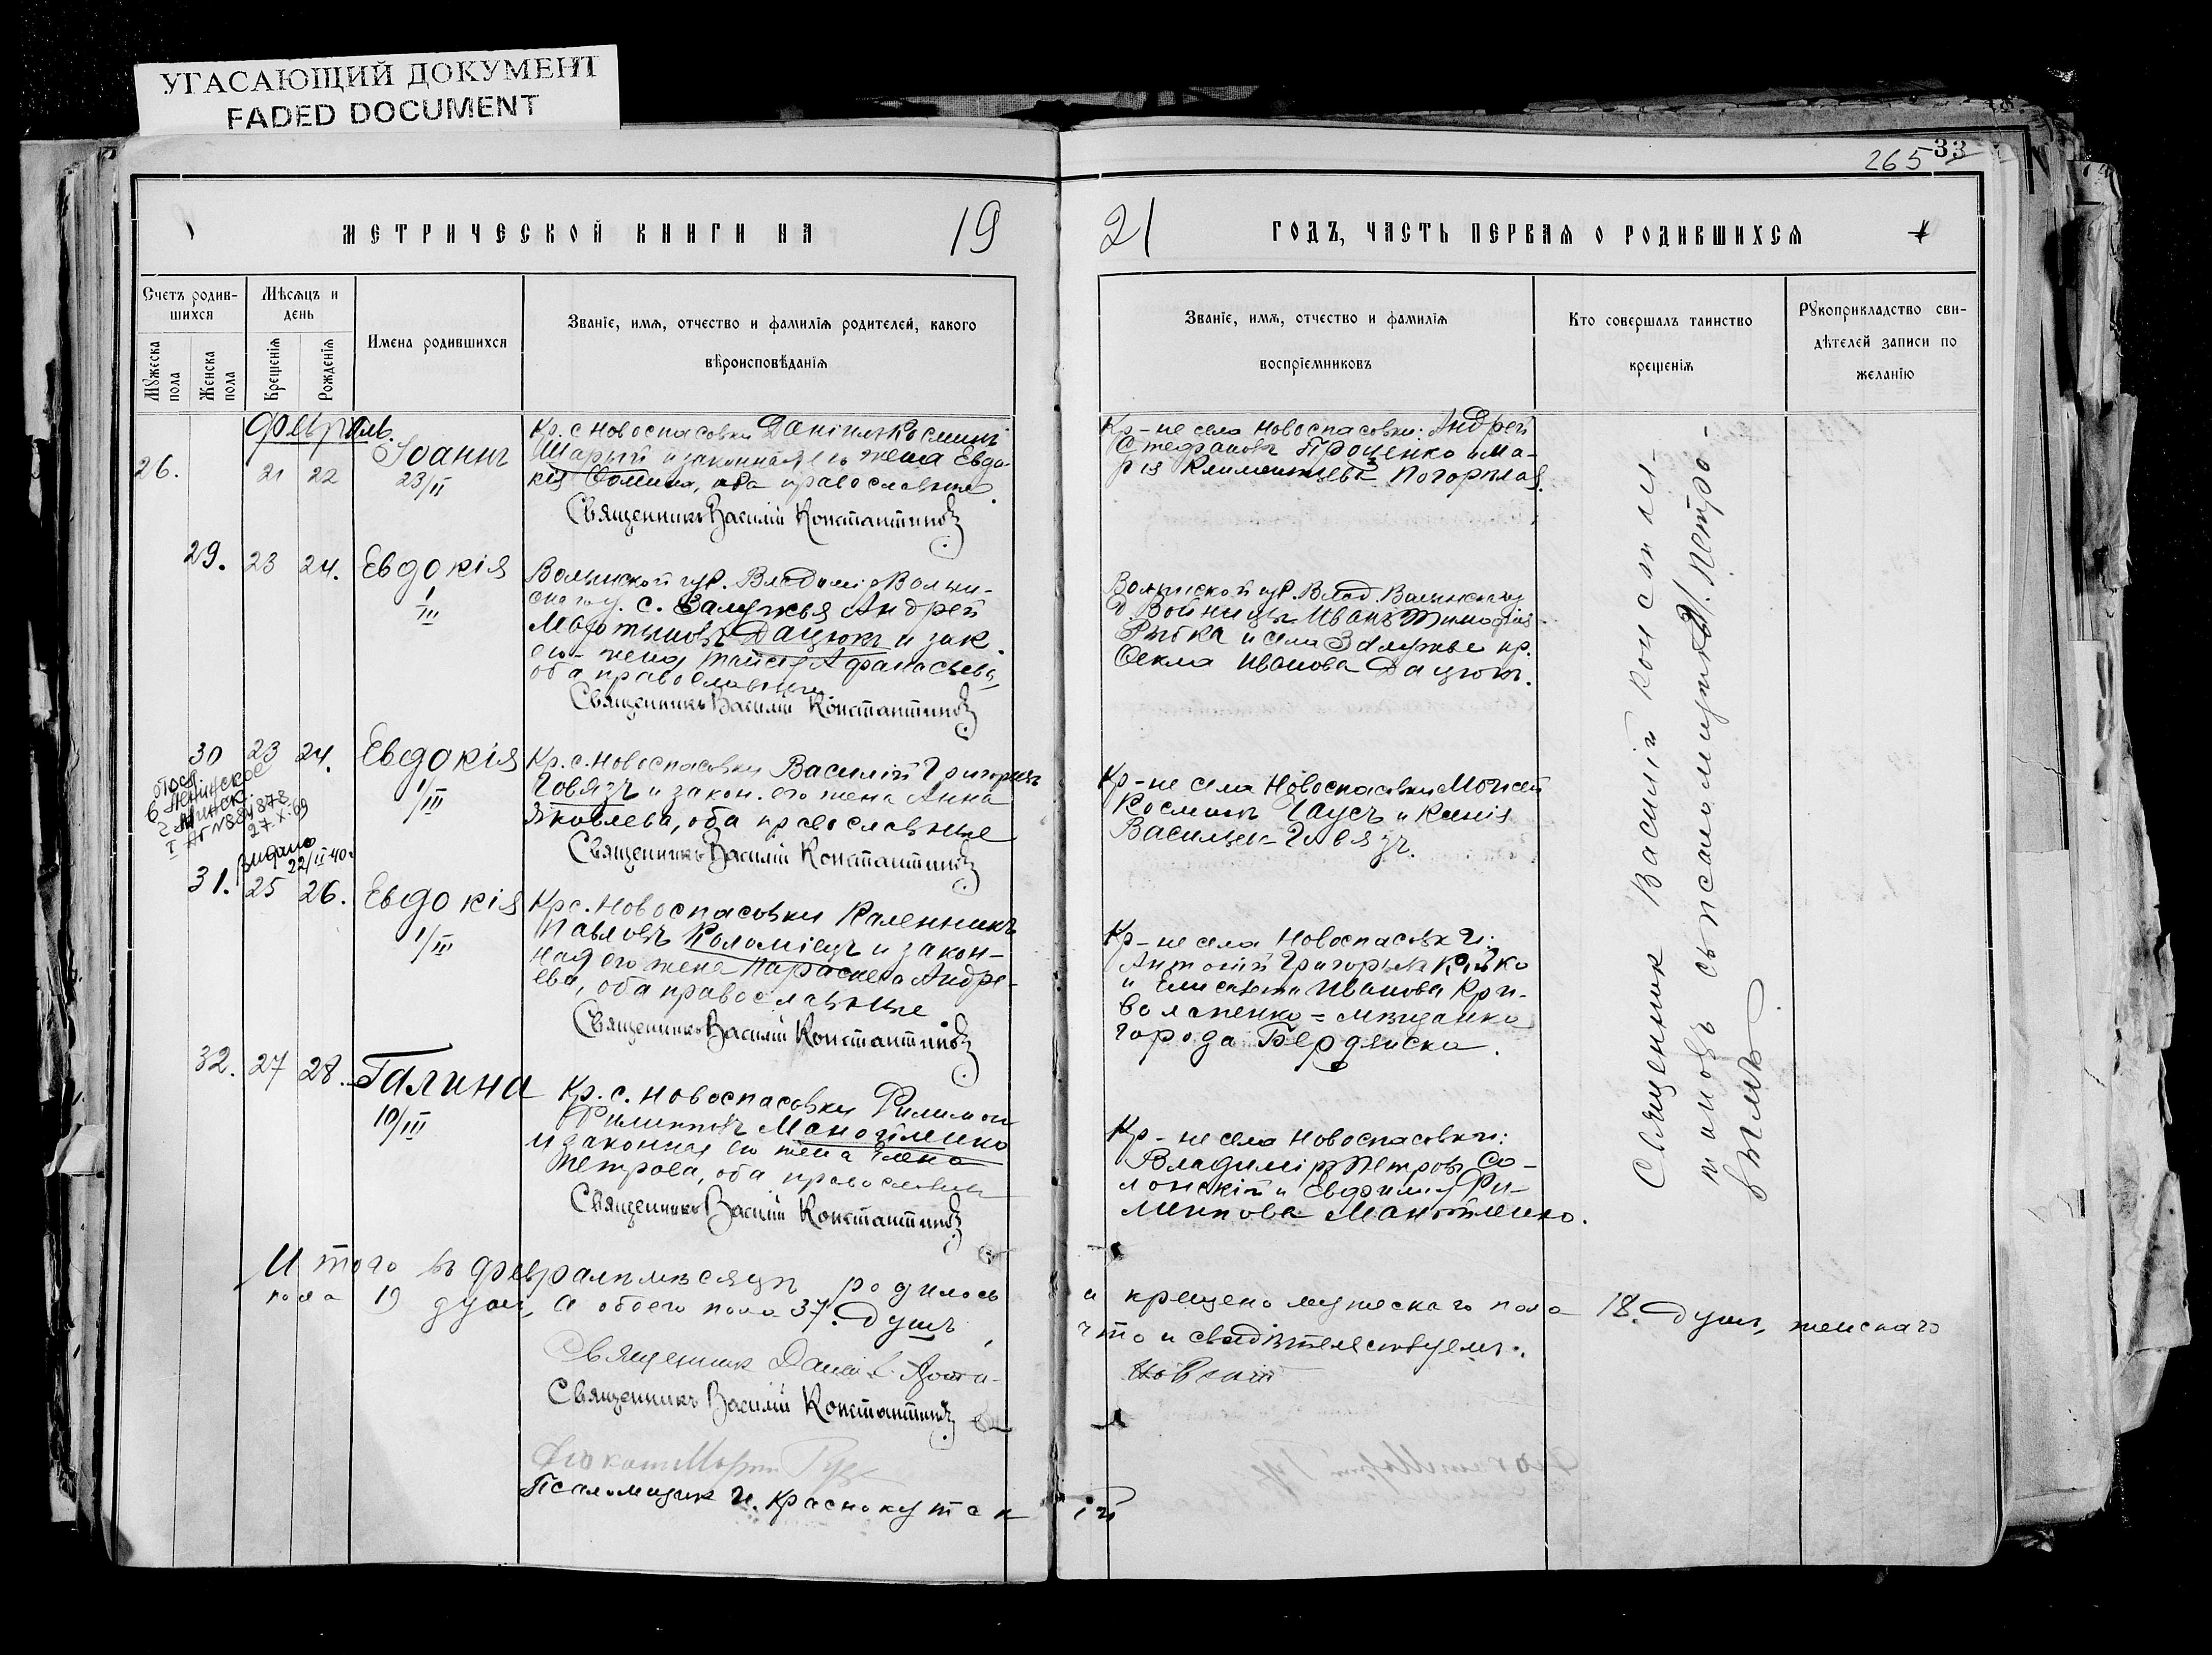 УГАСАЮЩИЙ ДОКУМЕНТ
FADED DOCUMENT
265 33
МЕТРИЧЕСКОЙ КНИГИ НА 19
21 ГОДЪ, ЧАСТЬ ПЕРВАЯ О РОДИВШИХСЯ
Счетъ родив-
шихся
Мужеска
пола
Женска
пола
Мѣсяцъ и
день
Крещенія
Рожденія
Имена родившихся
Званіе, имя, отчество и фамилія родителей, какого
вѣроисповѣданія
Званіе, имя, отчество и фамилія
воспріемниковъ
Кто совершалъ таинство
крещенія
Рукоприкладство сви-
дѣтелей записи по
желанію
Февраль.
26. 21 22 Іоаннъ
23/II
Кр. с Новоспасовки Даніилъ Косминъ
Шарый и законная его жена Евдо-
кія Фомина, оба православные.
Священникъ Василій Константиновъ
Кр-не села Новоспасовки: Андрей
Стефановъ Проценко и Ма-
рія
29. 23 24. Евдокія
1/III
Волынской губ. Владиміро Волын-
скаго у. с. Залужья Андрей
Мартыновъ Дацюкъ и зак.
его жена Таисія Афанасьева,
оба православные.
Священникъ Василій Константиновъ
Волынской губ. Влад. Волынскаго у
Иванъ
Рыбка и села Залужье кр.
Фекла Иванова Дацюк.
30 23 24. Евдокія
1/III
27.X.69
Кр. с. Новоспасовки Василій Григорьевъ
Говязъ и закон. его жена Анна
Яковлева, оба православные
Священникъ Василій Константиновъ
Кр-не села Новоспасовки Моисей
Косминъ Гаусъ и
Васильев Говязъ.
Видано
22/II 40.
31. 25 26. Евдокія
1/III
Кр с. Новоспасовки Каленникъ
Павловъ Коломіецъ и закон-
ная его жена Параскева Андре-
ева, оба православные
Священникъ Василій Константиновъ
Кр-не села Новоспасовки:
Антоній Григорьевъ
и Елисавета Иванова Кри-
воляпенко = мѣщанка
города Бердянска.
32. 27 28. Галина
10/III
Кр. с. Новоспасовки Филимон
Филипповъ Манойленко
и законная его жена Елена
Петрова, оба православные
Священникъ Василій Константиновъ
Кр-не села Новоспасовки:
Владиміръ Петровъ Со-
лонскій и Евфимія Фи-
липова Манойленко.
Священник Василій Констан-
тиновъ съ псаломщикомъ Петро-
вымъ
Итого въ февралѣ мѣсяцѣ родилось и крещено мужескаго пола 18. душъ, женскаго
пола 19 душъ, а обоего пола 37. душъ, что и свидѣтельствуемъ.
Священник
Священникъ Василій Константиновъ
Псаломщик И. Краснокутскій